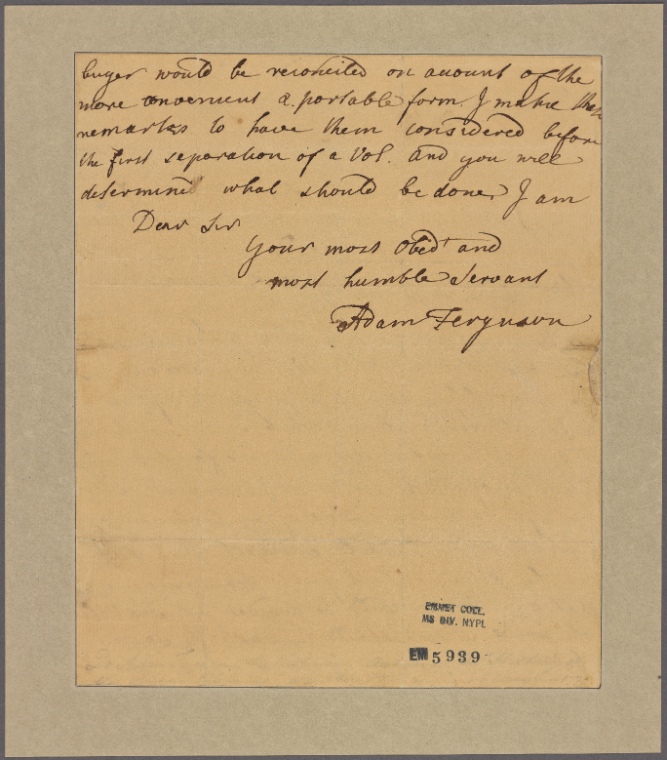 buyer would be reconciled on account of the
more convenient & portable form. I make these
remarks to have them considered before
the first separation of a Vol. and you will
determine what should be done, I am
Dear Sir
Your most Obedt and
most humble Servant
Adam Ferguson
EMMET COLL.
MS DIV. NYPL
EM 5939